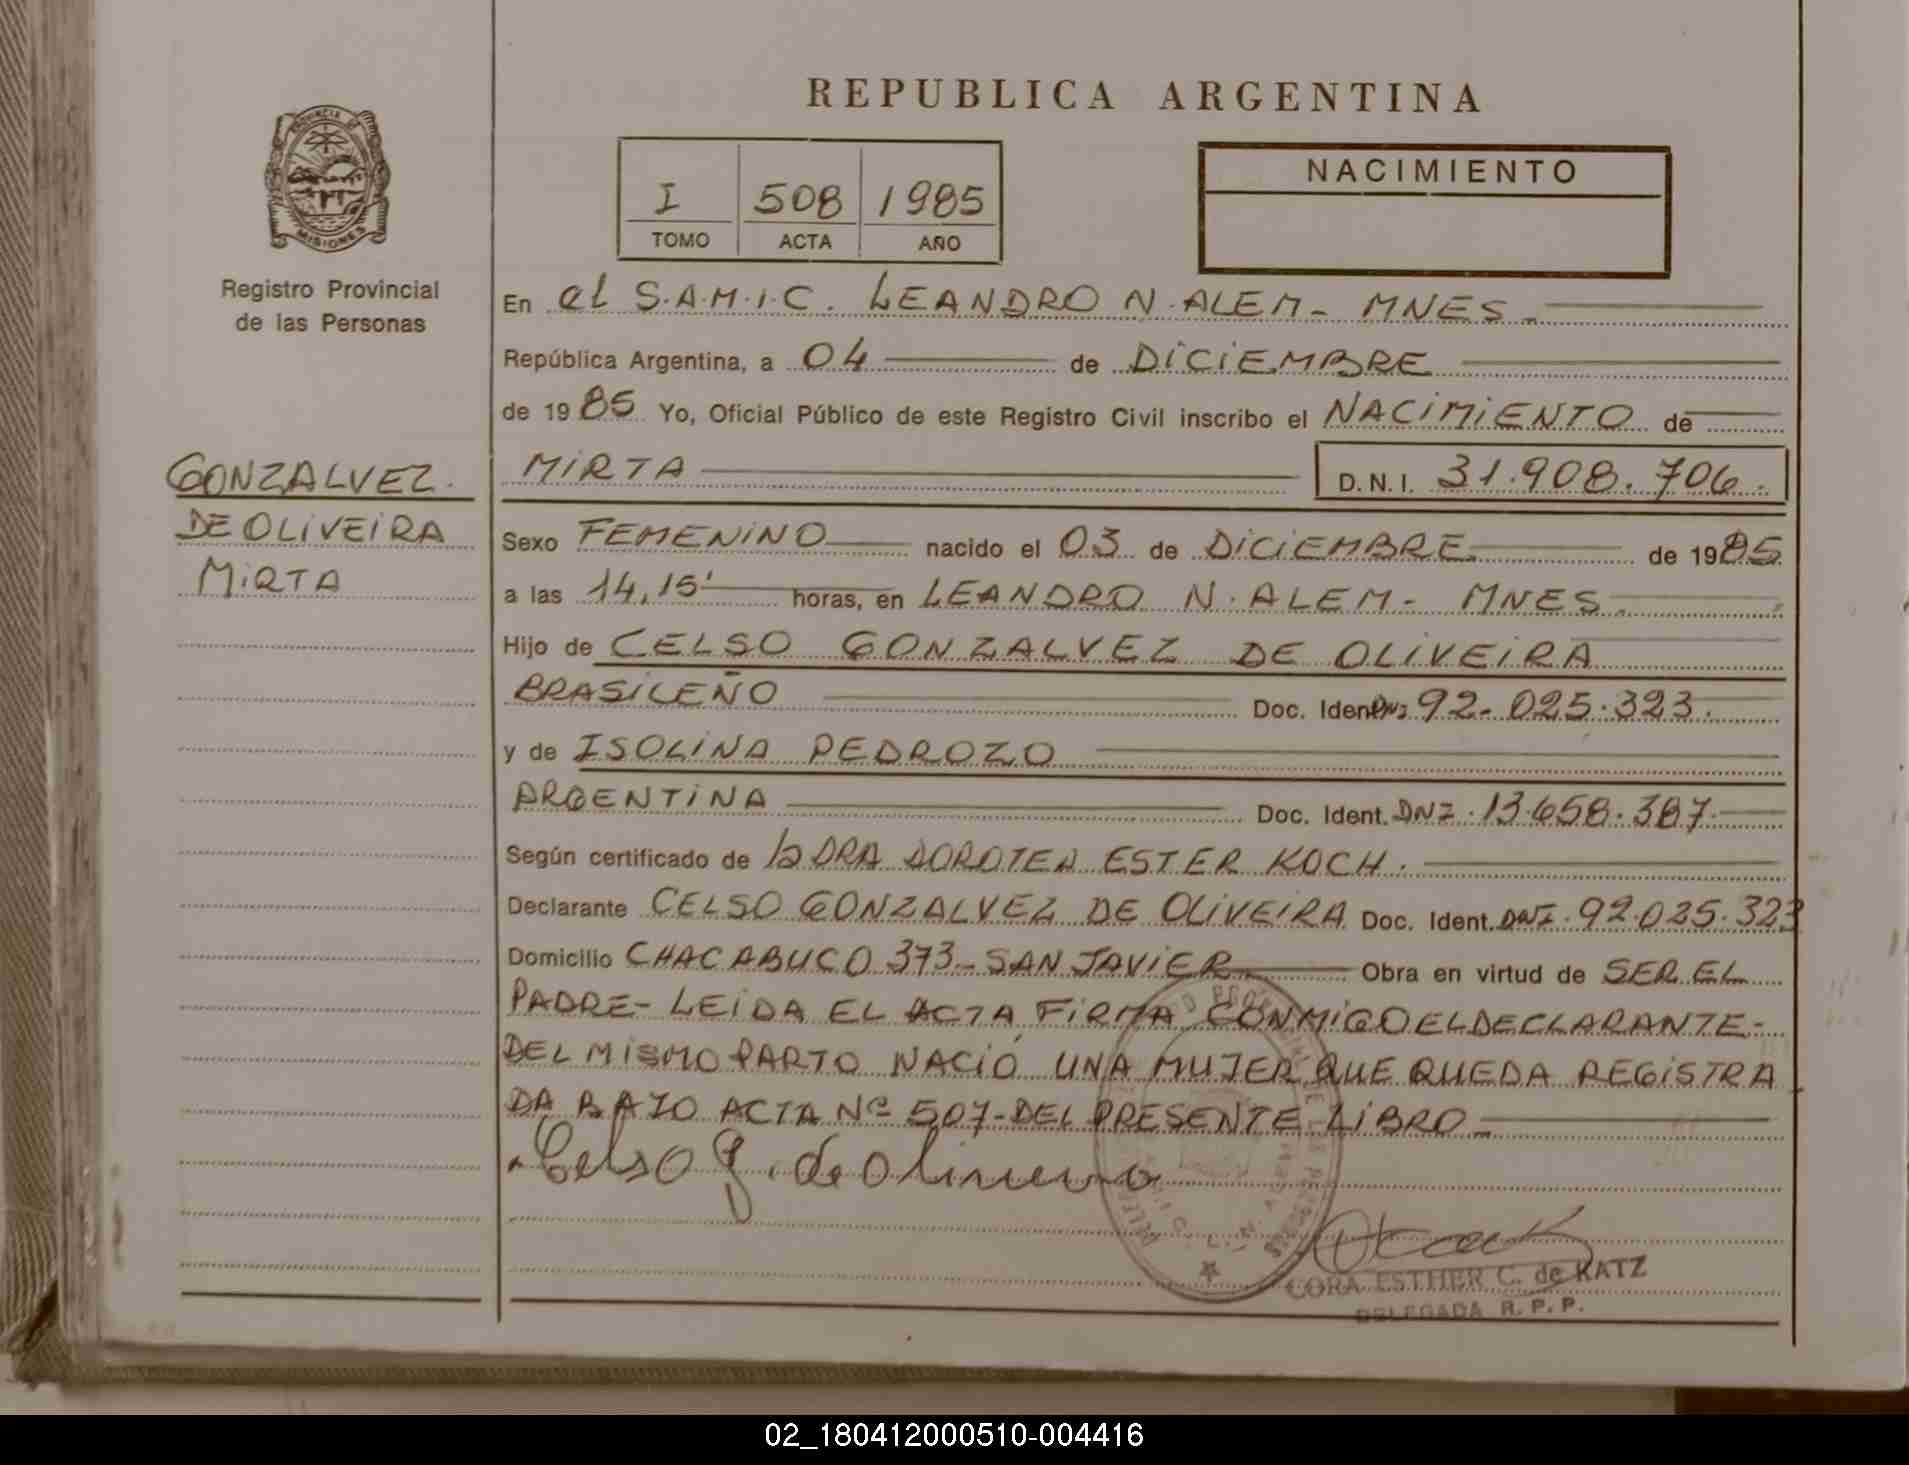 REPUBLICA ARGENTINA
PROVINCIA DE
MISIONES
Registro Provincial
de las Personas
I 508 1985
TOMO ACTA AÑO
NACIMIENTO
En el S.A.M.I.C. LEANDRO N. ALEM - MNES -
República Argentina, a 04 de DICIEMBRE
de 1985 Yo, Oficial Público de este Registro Civil inscribo el NACIMIENTO de
GONZALVEZ.
DE OLIVEIRA
MIRTA
MIRTA D.N.I. 31.908.706.
Sexo FEMENINO nacido el 03 de DICIEMBRE de 1985
a las 14,15' horas, en LEANDRO N. ALEM - MNES.
Hijo de CELSO GONZALVEZ DE OLIVEIRA
BRASILEÑO Doc. Ident. DNI 92.025.323.
y de ISOLINA PEDROZO
ARGENTINA Doc. Ident. DNI. 13.658.387.
Según certificado de la DRA DOROTEA ESTER KOCH.
Declarante CELSO GONZALVEZ DE OLIVEIRA Doc. Ident. DNI. 92.025.323
Domicilio CHACABUCO 373 - SAN JAVIER Obra en virtud de SER EL
PADRE - LEIDA EL ACTA FIRMA CONMIGO EL DECLARANTE -
DEL MISMO PARTO NACIÓ UNA MUJER QUE QUEDA REGISTRA
DA BAJO ACTA Nº 507 - DEL PRESENTE LIBRO -
Celso G. de Oliveira
CORA ESTHER C. de KATZ
DELEGADA R. P. P.
02_180412000510-004416